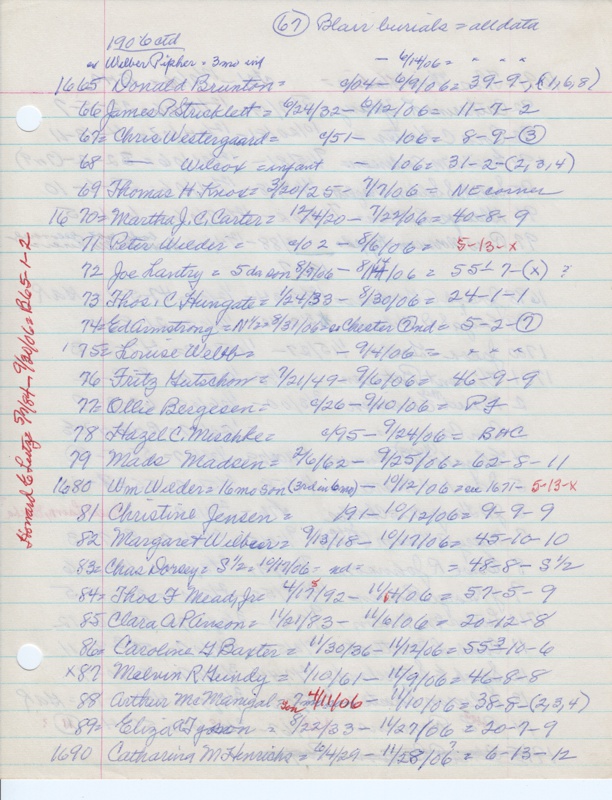 (67) Blair burials = all data
1906 ctd
Wilber Pipher = 3 mo inf - 6/14/06 = " " "
1665 Donald Brunton = c/04 - 6/9/06 = 39-9-(1,6,8)
66 James P. Stricklett = 6/24/32 - 6/12/06 = 11-7-2
67 = Chris Westergaard = c/51 - 106 = 8-9-(3)
68 — Wilcox = infant - 106 = 31-2-(2,3,4)
69 Thomas H. Knox = 3/20/25 - 7/7/06 = NE corner
1670 = Martha J. C. Carter = 12/4/20 - 7/22/06 = 40-8-9
71 Peter Wieder = c/02 - 8/6/06 = 5-13-x
72 Joe Lantry = 5 da son 8/9/06 - 8/14/06 = 55 1/2 7-(x) ?
73 Thos. C. Hungate = 1/24/33 - 8/30/06 = 24-1-1
74 = Ed Armstrong = N 1/2 = 8/31/06 = Chester (?) nd = 5-2-(7)
1675 = Louise = - 9/4/06 = " " "
76 Fritz Gutschow = 7/21/49 - 9/6/06 = 46-9-9
77 = Ollie Bergesen = c/26 - 9/10/06 = P.F
78 Hazel C. Mischke = c/95 - 9/24/06 = BHC
79 Mads Madsen = 2/6/62 - 9/25/06 = 62-8-11
1680 Wm Wilder = 16 mo son (3rd in 6 mo) - 10/12/06 = see 1671 - 5-13-x
81 Christine Jensen = /91 - 10/12/06 = 9-9-9
82 Margaret = 9/13/18 - 10/17/06 = 45-10-10
83 = Chas Dorsey = S 1/2 = 10/17/06 = nd = = 48-8-S 1/2
84 = Thos F Mead, Jr = 4/17/92 - 11/4/06 = 57-5-9
85 Clara A. Pinson = 11/21/83 - 11/6/06 = 20-12-8
86 = Caroline G. Baxter = 11/30/36 - 11/12/06 = 55 3 10-6
x87 Melvin R. Gundy = 1/10/61 - 11/9/06 = 46-8-8
88 Arthur McManigal = 7 mo son 4/11/06 - 11/10/06 = 38-8-(2,3,4)
89 = Eliza A Tyson = 8/22/33 - 11/27/06 = 20-7-9
1690 Catharina M. Hinrichs = 6/4/29 - 11/28/06? = 6-13-12
Howard C Leitze 5/7/84 - 9/20/06 = B65-1-2